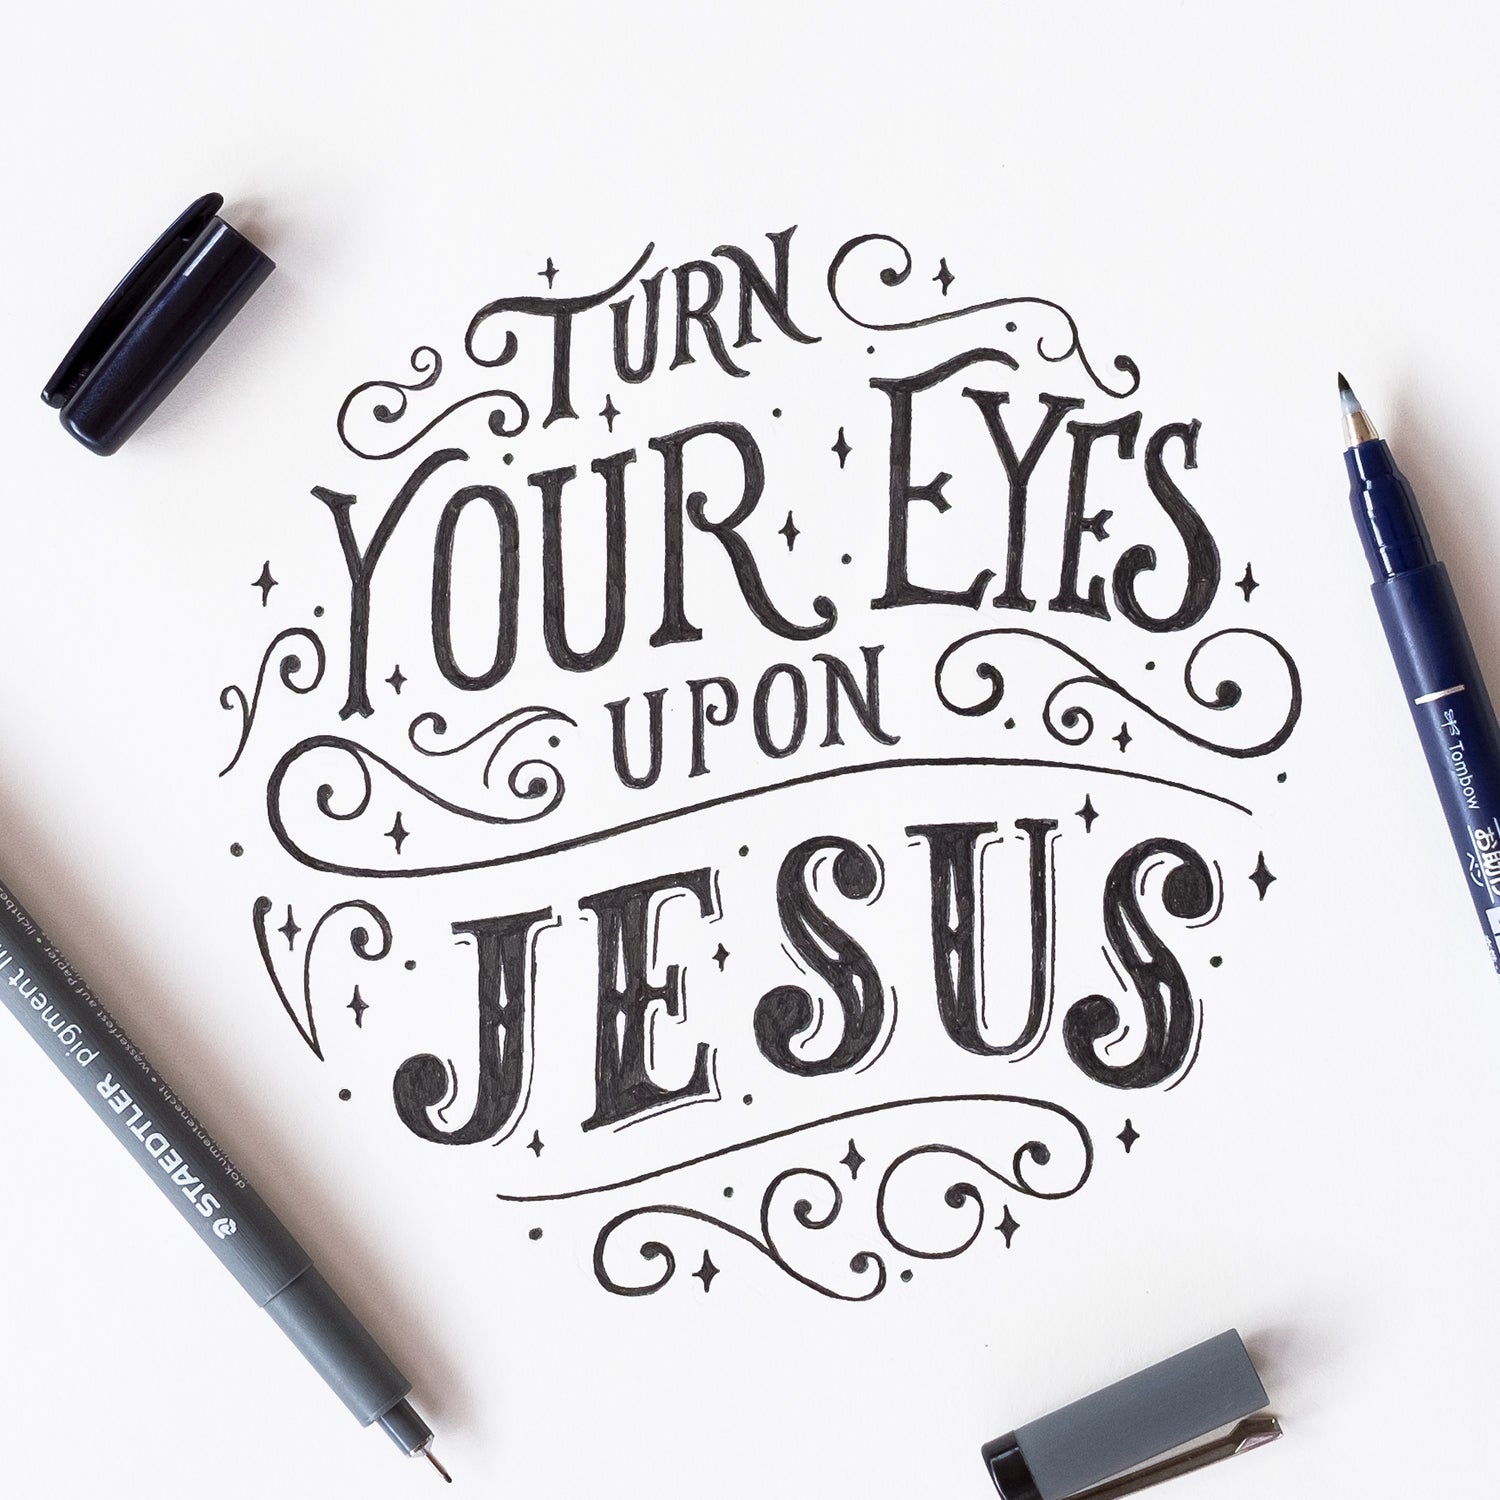 TURN
YOUR EYES
UPON
JESUS
STAEDTLER pigment li
dokumentenecht • wasserfest auf Papier • lichtbe
Tombow